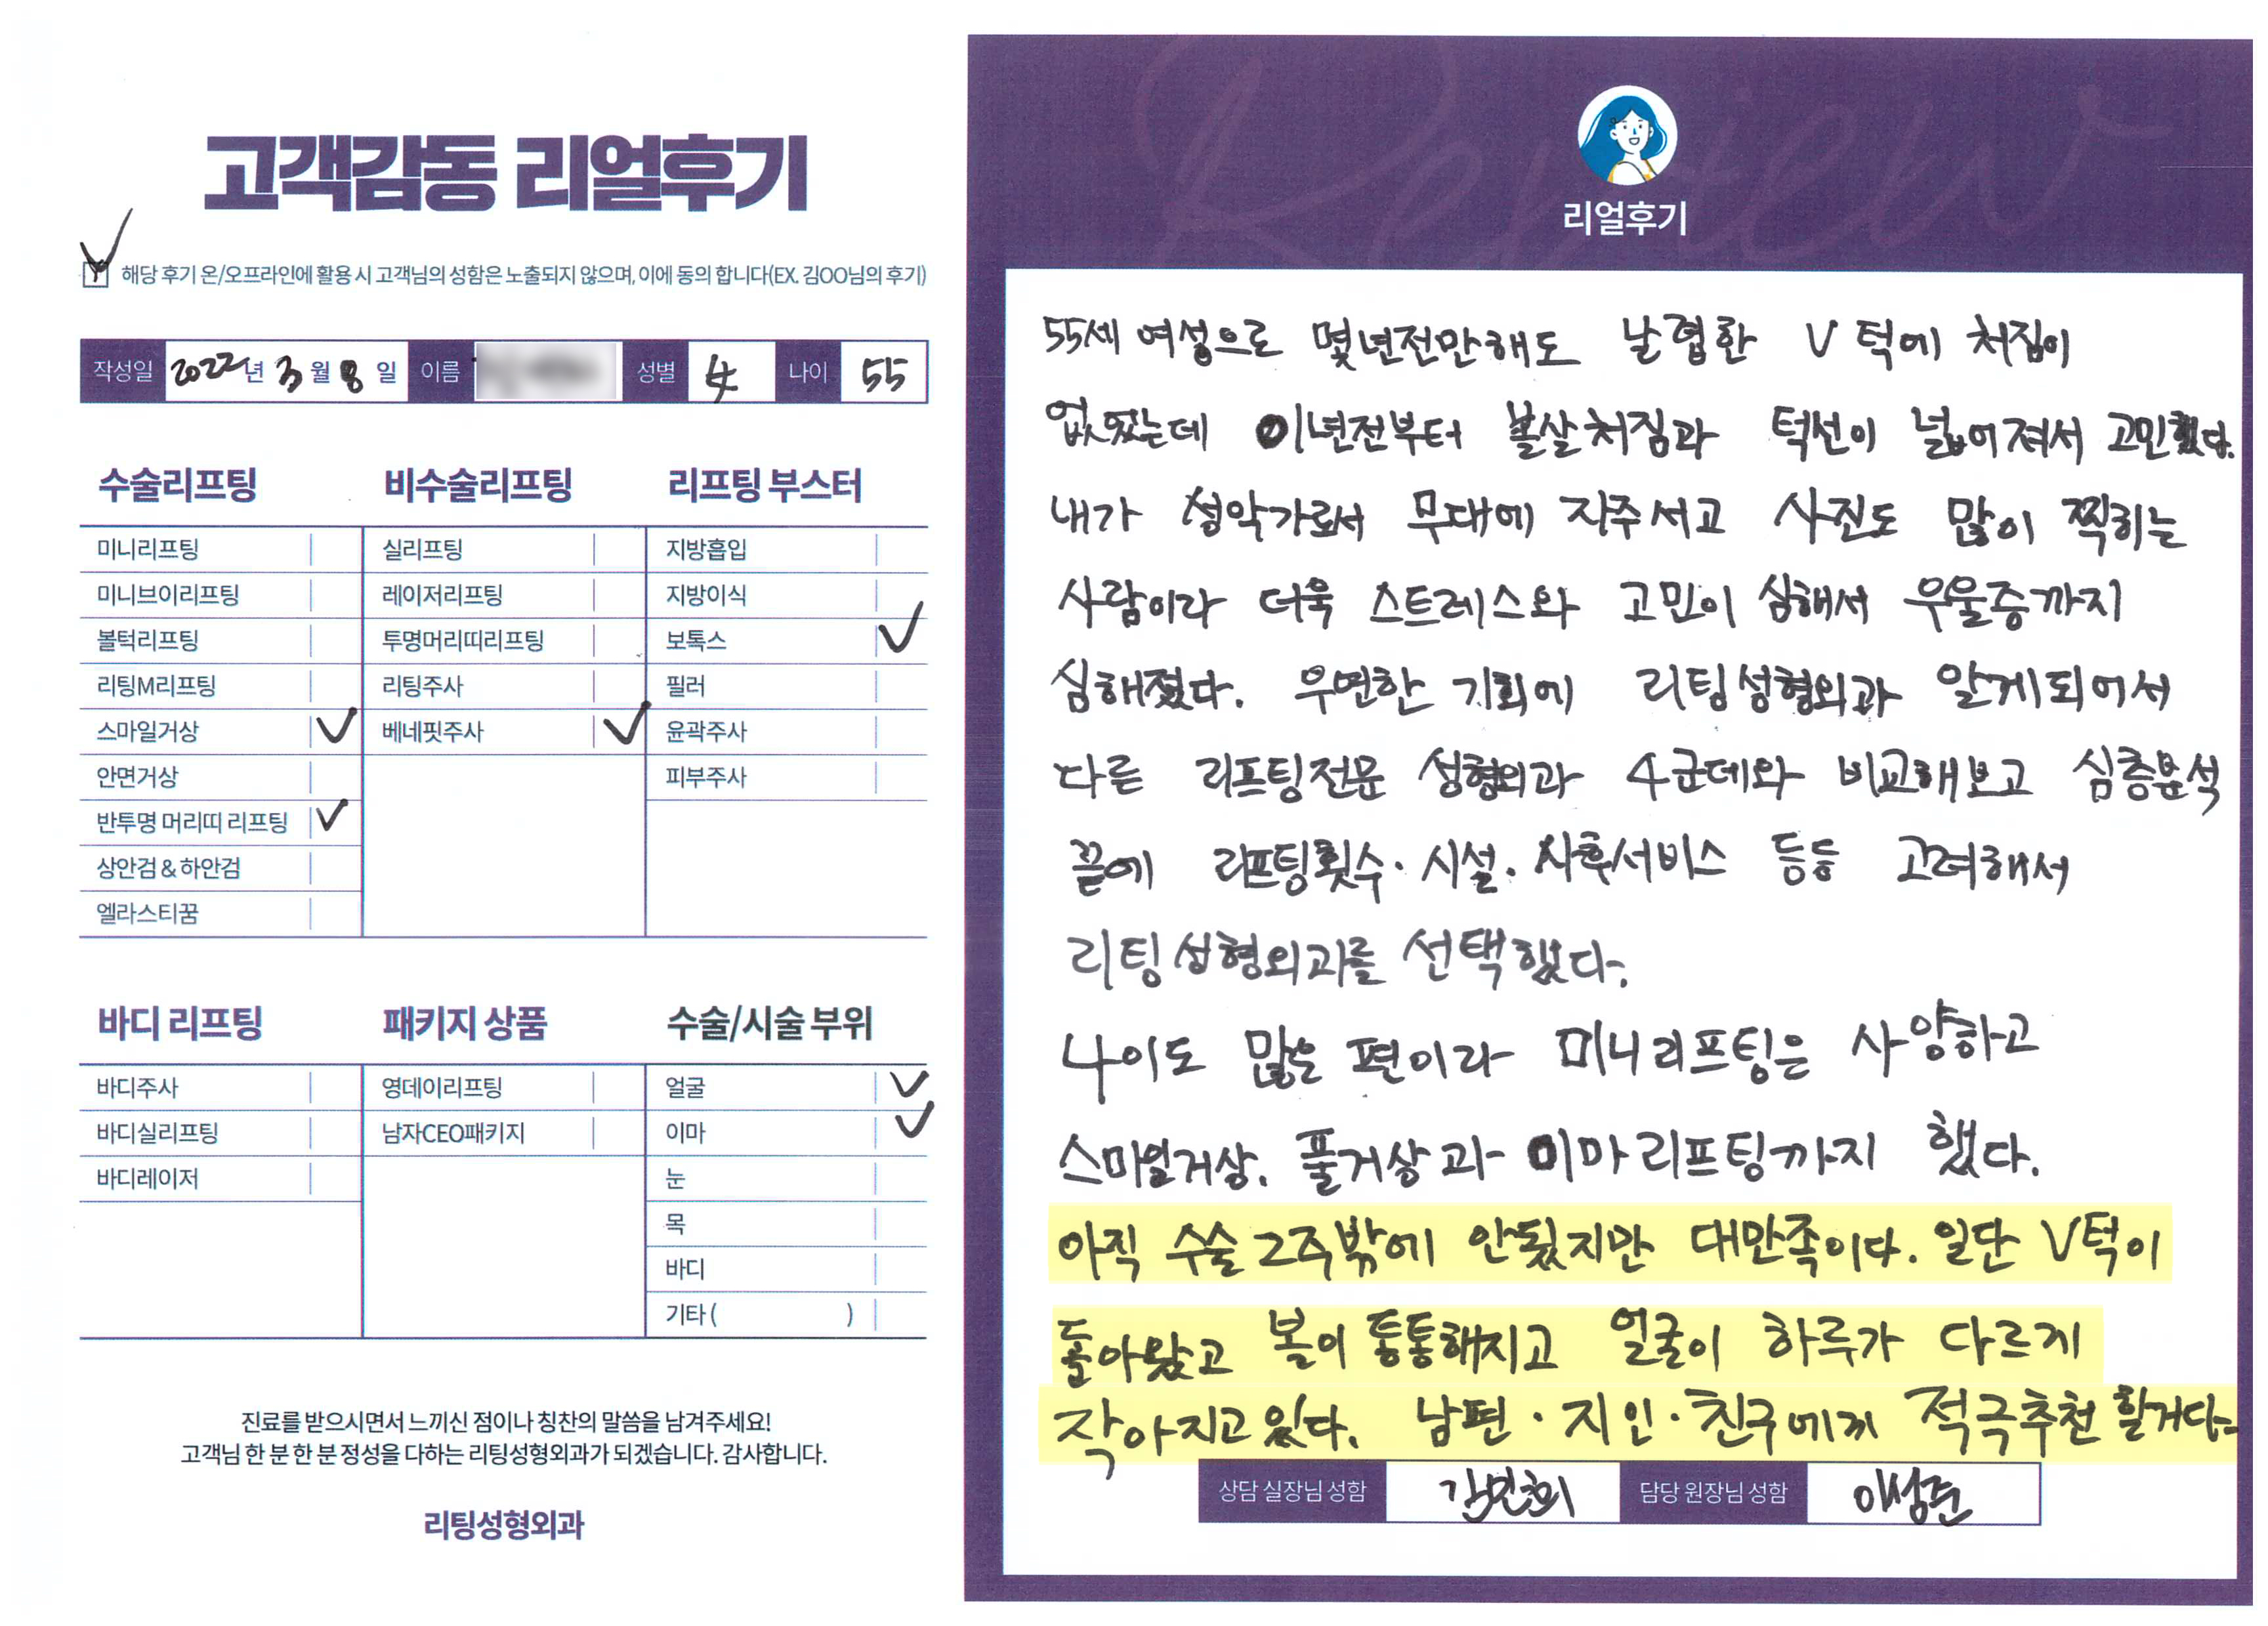 고객감동 리얼후기
해당 후기 온/오프라인에 활용 시 고객님의 성함은 노출되지 않으며, 이에 동의 합니다(EX. 김OO님의 후기)
작성일 2022년 3월 8일 이름 성별 女 나이 55
수술리프팅
미니리프팅
미니브이리프팅
볼턱리프팅
리팅M리프팅
스마일거상
안면거상
반투명 머리띠 리프팅
상안검 & 하안검
엘라스티꿈
비수술리프팅
실리프팅
레이저리프팅
투명머리띠리프팅
리팅주사
베네핏주사
리프팅 부스터
지방흡입
지방이식
보톡스
필러
윤곽주사
피부주사
바디 리프팅
바디주사
바디실리프팅
바디레이저
패키지 상품
영데이리프팅
남자CEO패키지
수술/시술 부위
얼굴
이마
눈
목
바디
기타 ( )
진료를 받으시면서 느끼신 점이나 칭찬의 말씀을 남겨주세요!
고객님 한 분 한 분 정성을 다하는 리팅성형외과가 되겠습니다. 감사합니다.
리팅성형외과
Review
리얼후기
55세 여성으로 몇년전만해도 날렵한 V 턱에 처짐이
없었는데 이년전부터 볼살처짐과 턱선이 넓어져서 고민했다.
내가 성악가로서 무대에 자주서고 사진도 많이 찍히는
사람이라 더욱 스트레스와 고민이 심해서 우울증까지
심해졌다. 우연한 기회에 리팅성형외과 알게되어서
다른 리프팅전문 성형외과 4군데와 비교해보고 심층분석
끝에 리프팅횟수·시설·사후서비스 등등 고려해서
리팅성형외과를 선택했다.
나이도 많은 편이라 미니리프팅은 사양하고
스마일거상. 풀거상과 이마리프팅까지 했다.
아직 수술2주밖에 안됐지만 대만족이다. 일단 V턱이
돌아왔고 볼이 통통해지고 얼굴이 하루가 다르게
작아지고 있다. 남편·지인·친구에게 적극추천 할거다.
상담 실장님 성함 김민희 담당 원장님 성함 이성준